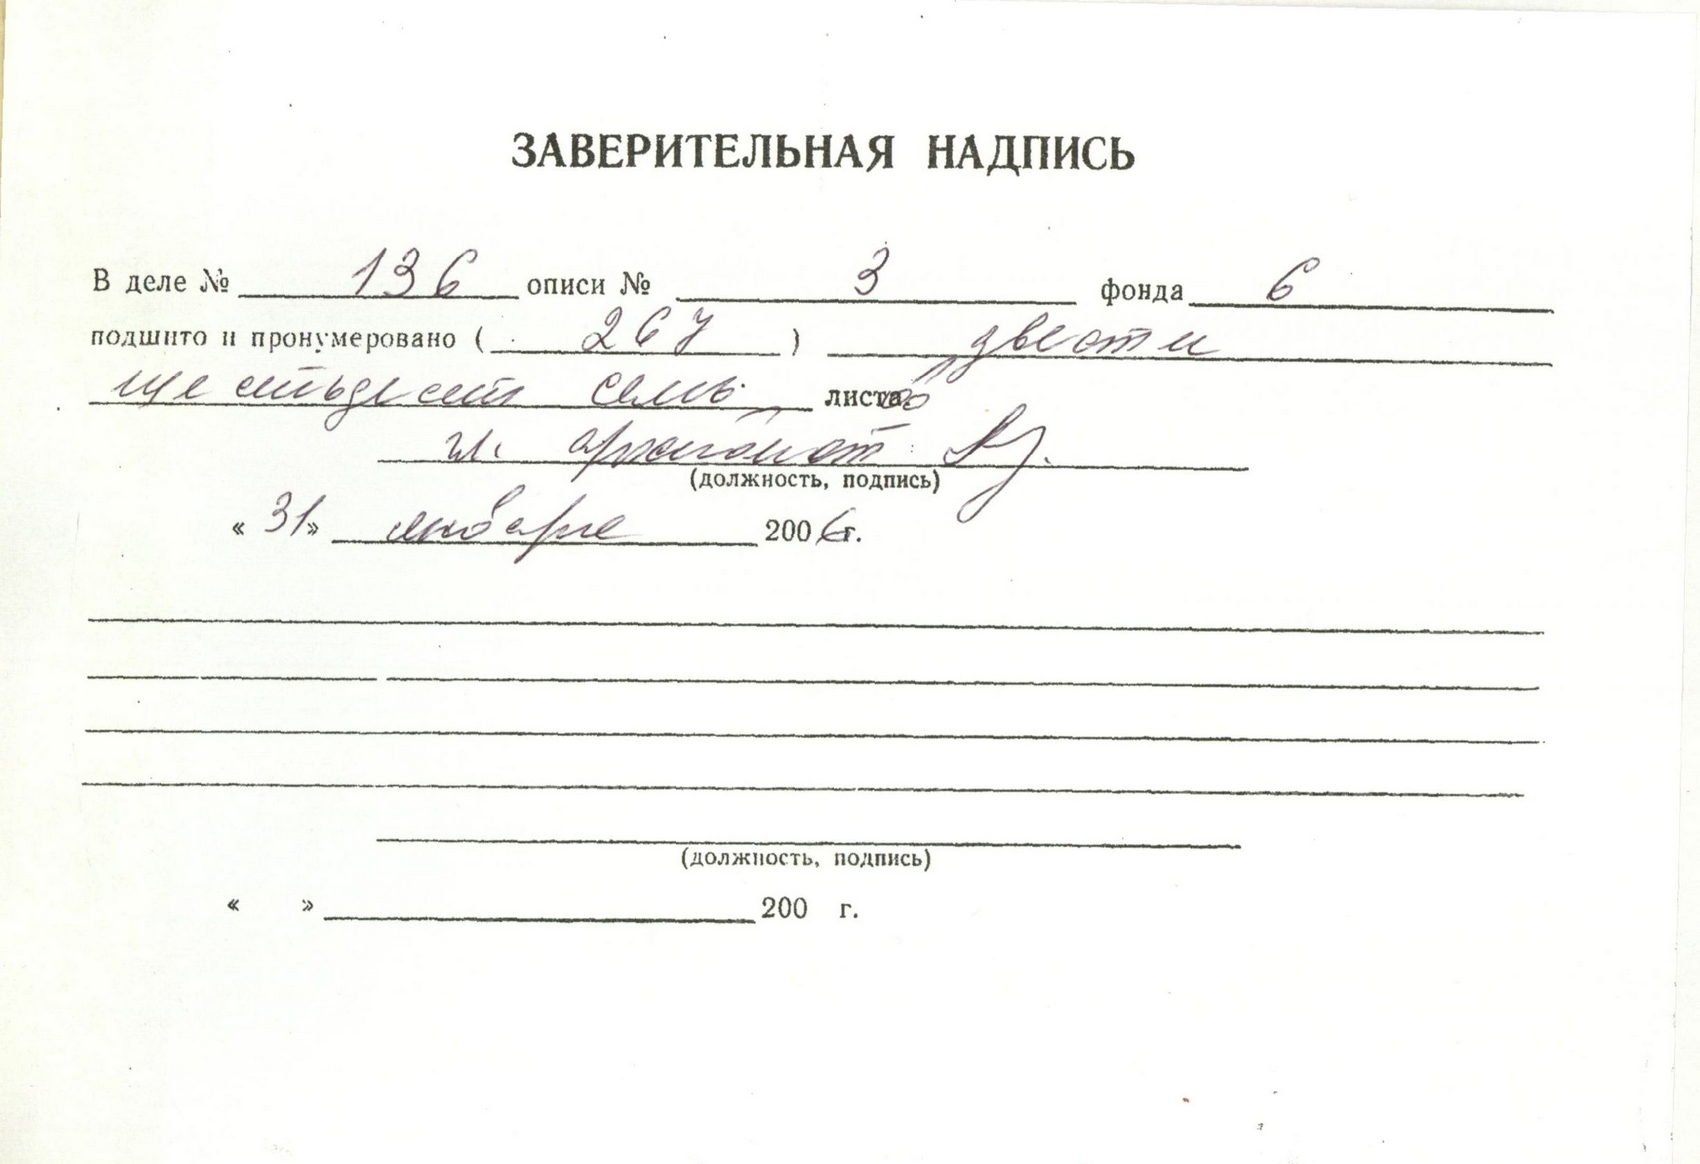 ЗАВЕРИТЕЛЬНАЯ НАДПИСЬ
В деле № 136 описи № 3 фонда 6
подшито и пронумеровано ( 267 ) двести
шестьдесят семь листов
гл. архивист
(должность, подпись)
« 31 » января 2006 г.
(должность, подпись)
« » 200 г.